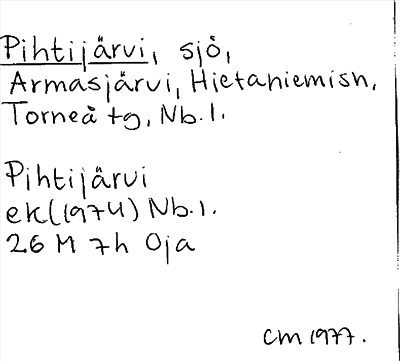 Pihtijärvi, sjö,
Armasjärvi, Hietaniemisn,
Torneå tg, Nb.l.
Pihtijärvi
ek(1974) Nb.l.
26 M 7h Oja
CM 1977.